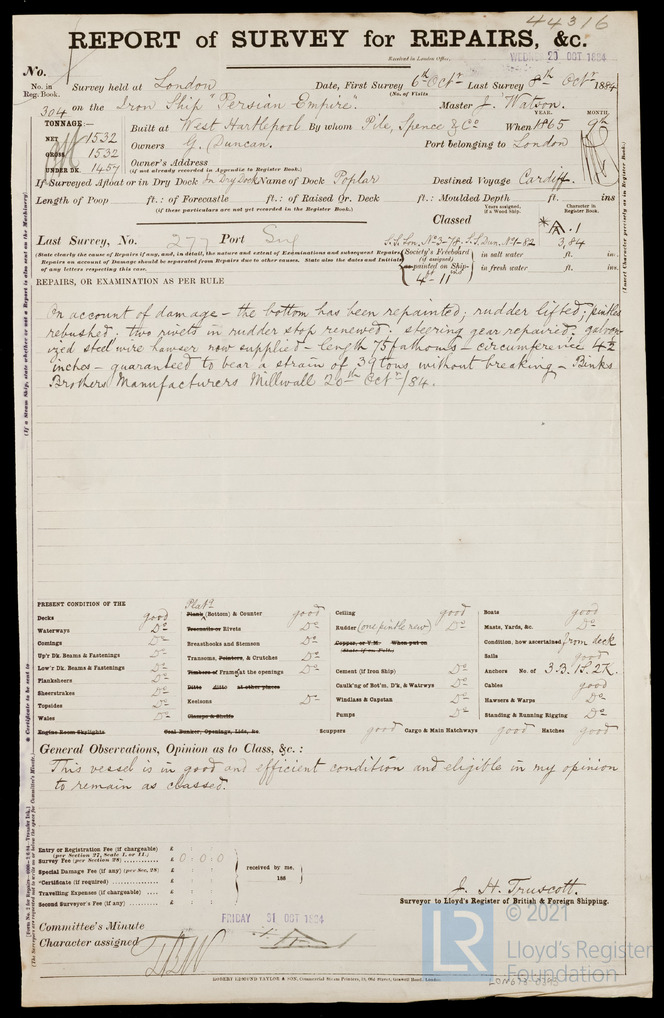 44316
REPORT of SURVEY for REPAIRS, &c.
Received in London Office,
WEDNES 29 OCT 1884
No.
No. in Reg. Book.
Survey held at London Date, First Survey 6th Octr Last Survey 8th Octr 1884
(No. of Visits
304 on the Iron Ship "Persian Empire". Master J. Watson.
TONNAGE:— YEAR. MONTH.
NET 1532 Built at West Hartlepool By whom Pile, Spence & Co When 1865 9th
GROSS 1532 Owners G. Duncan. Port belonging to London
UNDER DK. 1457 Owner's Address
(if not already recorded in Appendix to Register Book.)
If Surveyed Afloat or in Dry Dock In Dry Dock Name of Dock Poplar Destined Voyage Cardiff.
Length of Poop ft.: of Forecastle ft.: of Raised Qr. Deck ft.: Moulded Depth ft. ins
(if these particulars are not yet recorded in the Register Book.)
Years assigned, if a Wood Ship. Character in Register Book.
Classed A.1
Last Survey, No. 277 Port S.S. Lon. No 3-78. S.S. Dun. No 1-82 3,84
(State clearly the cause of Repairs if any, and, in detail, the nature and extent of Examinations and subsequent Repairs.
Repairs on account of Damage should be separated from Repairs due to other causes. State also the dates and Initials
of any letters respecting this case.
Society's Freeboard (if assigned) as painted on Ship— in salt water ft. in.
4-11 in fresh water ft. ins.
REPAIRS, OR EXAMINATION AS PER RULE
On account of damage - the bottom has been repainted; rudder lifted; pintles
rebushed: two rivets in rudder stop renewed: steering gear repaired: galvan-
ized steel wire hawser now supplied - length 75 fathoms - circumference 4½
inches - guaranteed to bear a strain of 39 tons without breaking - Binks
Brothers Manufacturers Millwall 20th Octr/84.
PRESENT CONDITION OF THE
Decks good
Waterways Do
Comings Do
Up'r Dk. Beams & Fastenings Do
Low'r Dk. Beams & Fastenings Do
Planksheers Do
Sheerstrakes Do
Topsides Do
Wales Do
Engine Room Skylights
Plank (Bottom) & Counter good
Treenails or Rivets Do
Breasthooks and Stemson Do
Transoms, Pointers, & Crutches Do
Timbers of Frame at the openings Do
Ditto ditto at other places
Keelsons Do
Clamps & Shelfs
Coal Bunker, Openings, Lids, &c.
Ceiling good
Rudder (one pintle new) Do
Copper, or Y.M. When put on
(State if on Felt.)
Cement (if Iron Ship) Do
Caulk'ng of Bot'm, D'k, & Watrwys Do
Windlass & Capstan Do
Pumps Do
Boats good
Masts, Yards, &c. Do
Condition, how ascertained from deck
Sails good
Anchors No. of 3.B. 1S. 2K.
Cables good
Hawsers & Warps Do
Standing & Running Rigging Do
Scuppers good Cargo & Main Hatchways good Hatches good
General Observations, Opinion as to Class, &c.:
This vessel is in good and efficient condition and eligible in my opinion
to remain as classed.
Entry or Registration Fee (if chargeable) £
(per Section 27, Scale 1. or 11.)
Survey Fee (per Section 28) £ 0 . 0 . 0
Special Damage Fee (if any) (per Sec. 28) £
*Certificate (if required) £
Travelling Expenses (if chargeable) £
Second Surveyor's Fee (if any) £
received by me, 188
J. H. Truscott.
Surveyor to Lloyd's Register of British & Foreign Shipping.
Committee's Minute FRIDAY 31 OCT 1884
Character assigned
ROBERT EDMUND TAYLOR & SON, Commercial Steam Printers, 19, Old Street, Goswell Road, London.
© 2021
LR
Lloyd's Register
Foundation